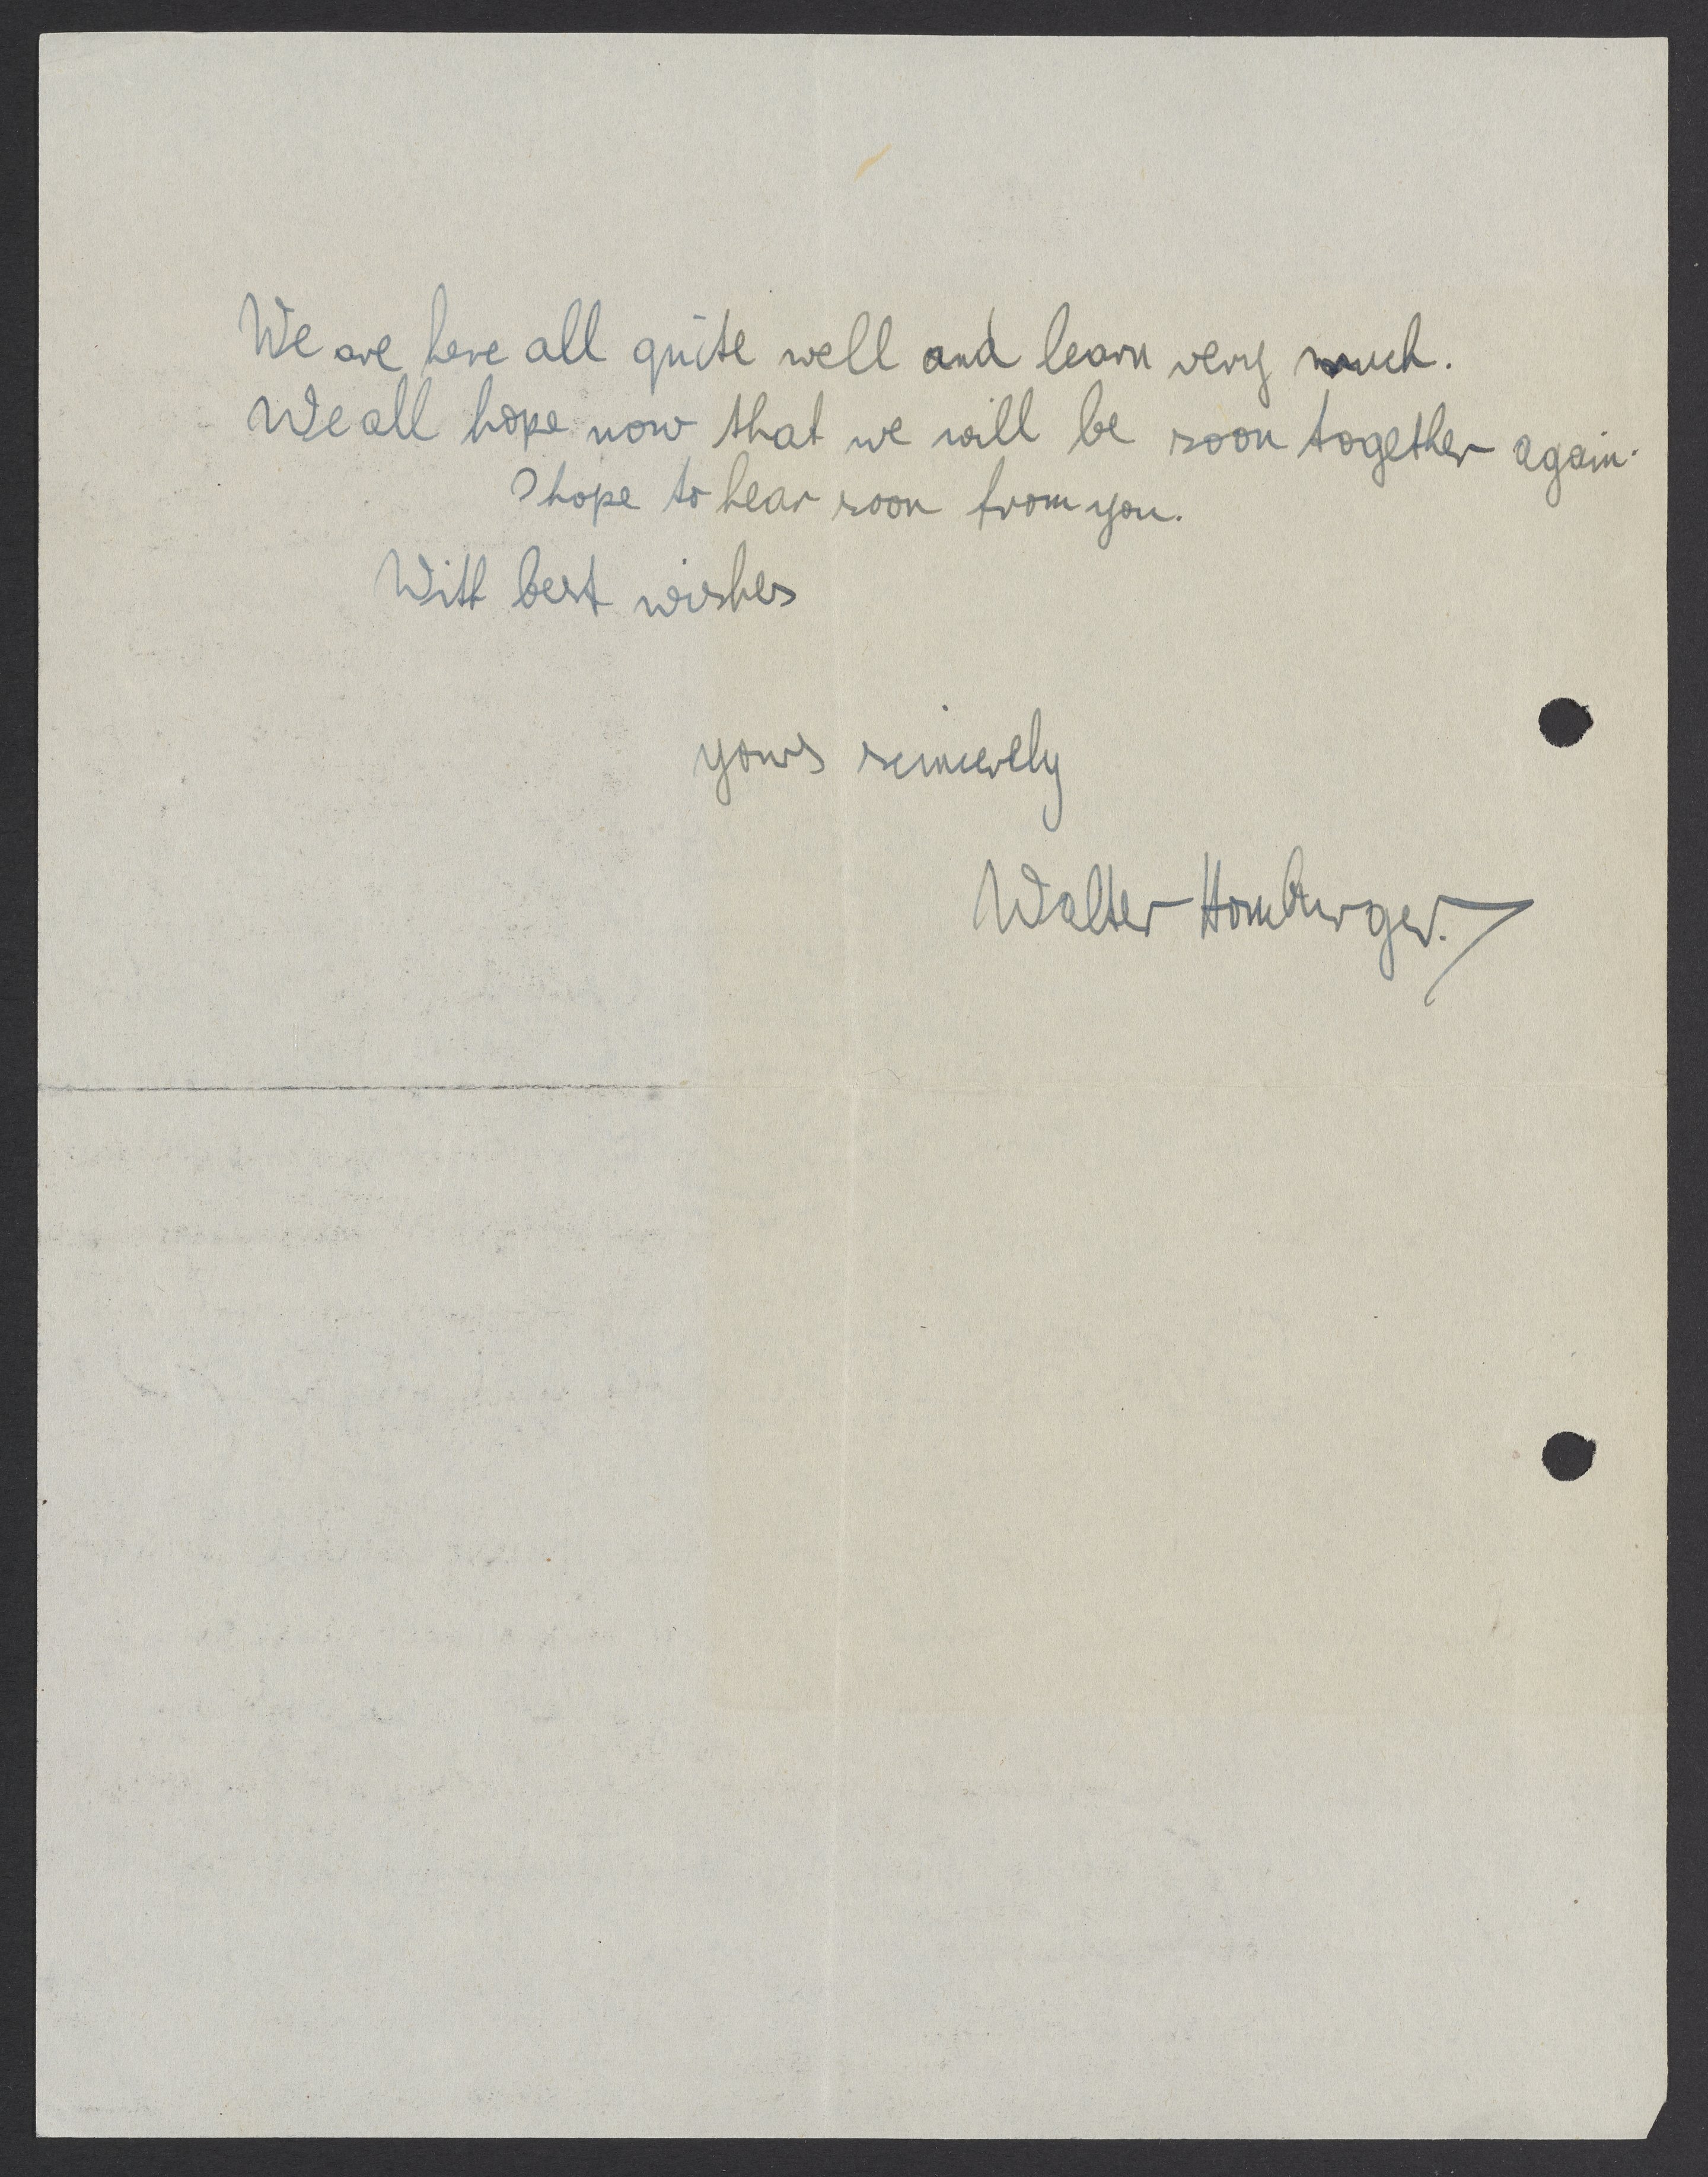 We are here all quite well and learn very much.
We all hope now that we will be soon together again.
I hope to hear soon from you.
With best wishes
yours sincerely
Walter Homburger.